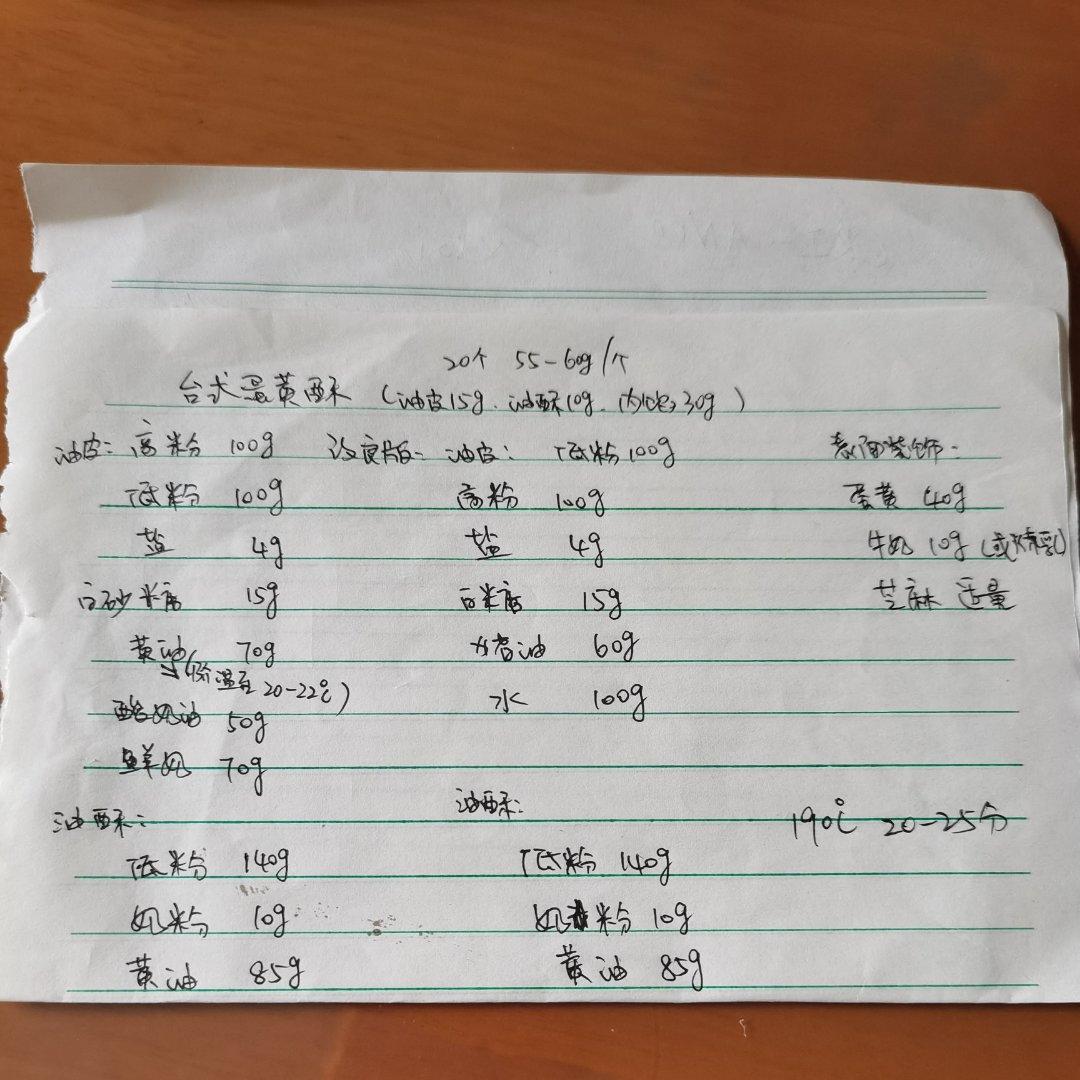 20个 55-60g/个
台式蛋黄酥 (油皮15g. 油酥10g. 内馅30g)
油皮: 高粉 100g
低粉 100g
盐 4g
白砂糖 15g
黄油 70g
(降温至 20-22℃)
酸奶油 50g
鲜奶 70g
油酥:
低粉 140g
奶粉 10g
黄油 85g
改良版- 油皮: 低粉100g
高粉 100g
盐 4g
白糖 15g
猪油 60g
水 100g
油酥:
低粉 140g
奶粉 10g
黄油 85g
表面装饰-
蛋黄 40g
牛奶 10g (或炼乳)
芝麻 适量
190℃ 20-25分